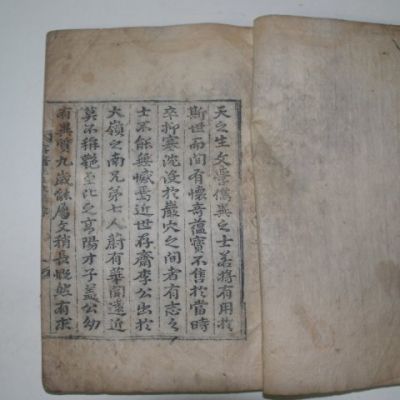 天之生文學儁異之士若將有用於
斯世而間有懷奇蘊寶不售於當時
卒抑塞沈沒於巖穴之間者有志之
士不能無慽焉近世存齋李公出於
大嶺之南兄弟七人蔚有華聞遠近
莫不稱艶至比之高陽才子盖公幼
有異質九歲能屬文稍長慨然有求